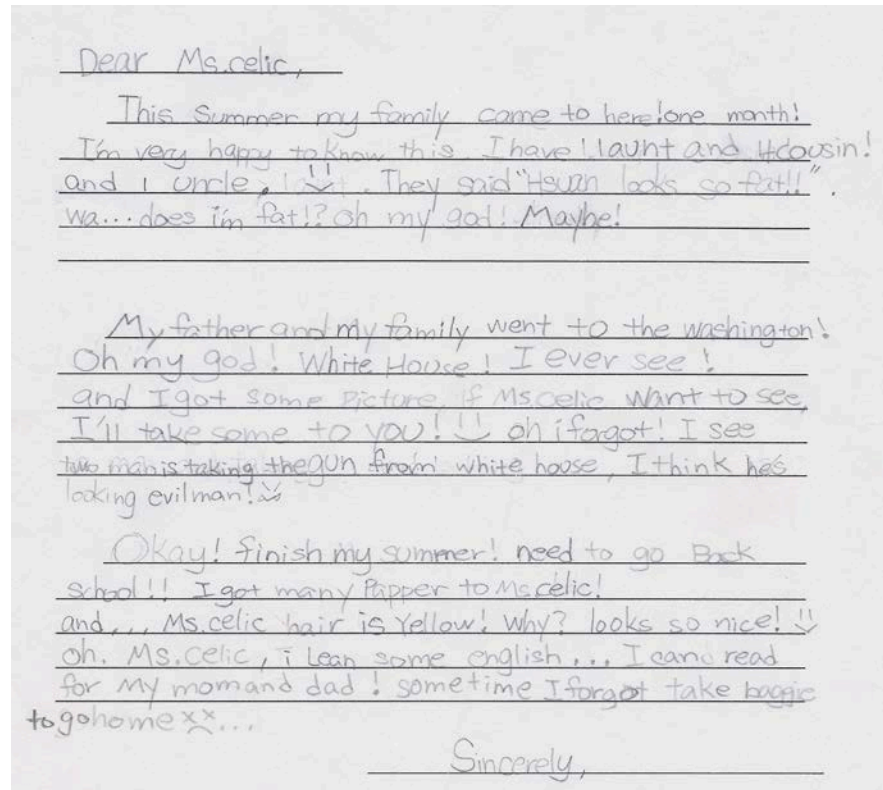 Dear Ms.celic,
This Summer my family came to here!one month!
I'm very happy to know this. I have 1 aunt and 4cousin!
and 1 uncle. . They said "Hsuan looks so fat!!".
wa...does i'm fat!? oh my god! Maybe!
My father and my family went to the washington!
Oh my god! White House! I ever see!
and I got some Picture. if Ms.celic want to see,
I'll take some to YOU! oh i forgot! I see
two man is taking the gun from white house, I think he's
looking evilman!
Okay! finish my summer! need to go Back
school!! I got many Papper to Ms.celic!
and... Ms.celic hair is Yellow! Why? looks so nice!
oh. Ms.celic, i Lean some english... I can read
for My mom and dad! sometime I forgot take baggie
to go home xx...
Sincerely,